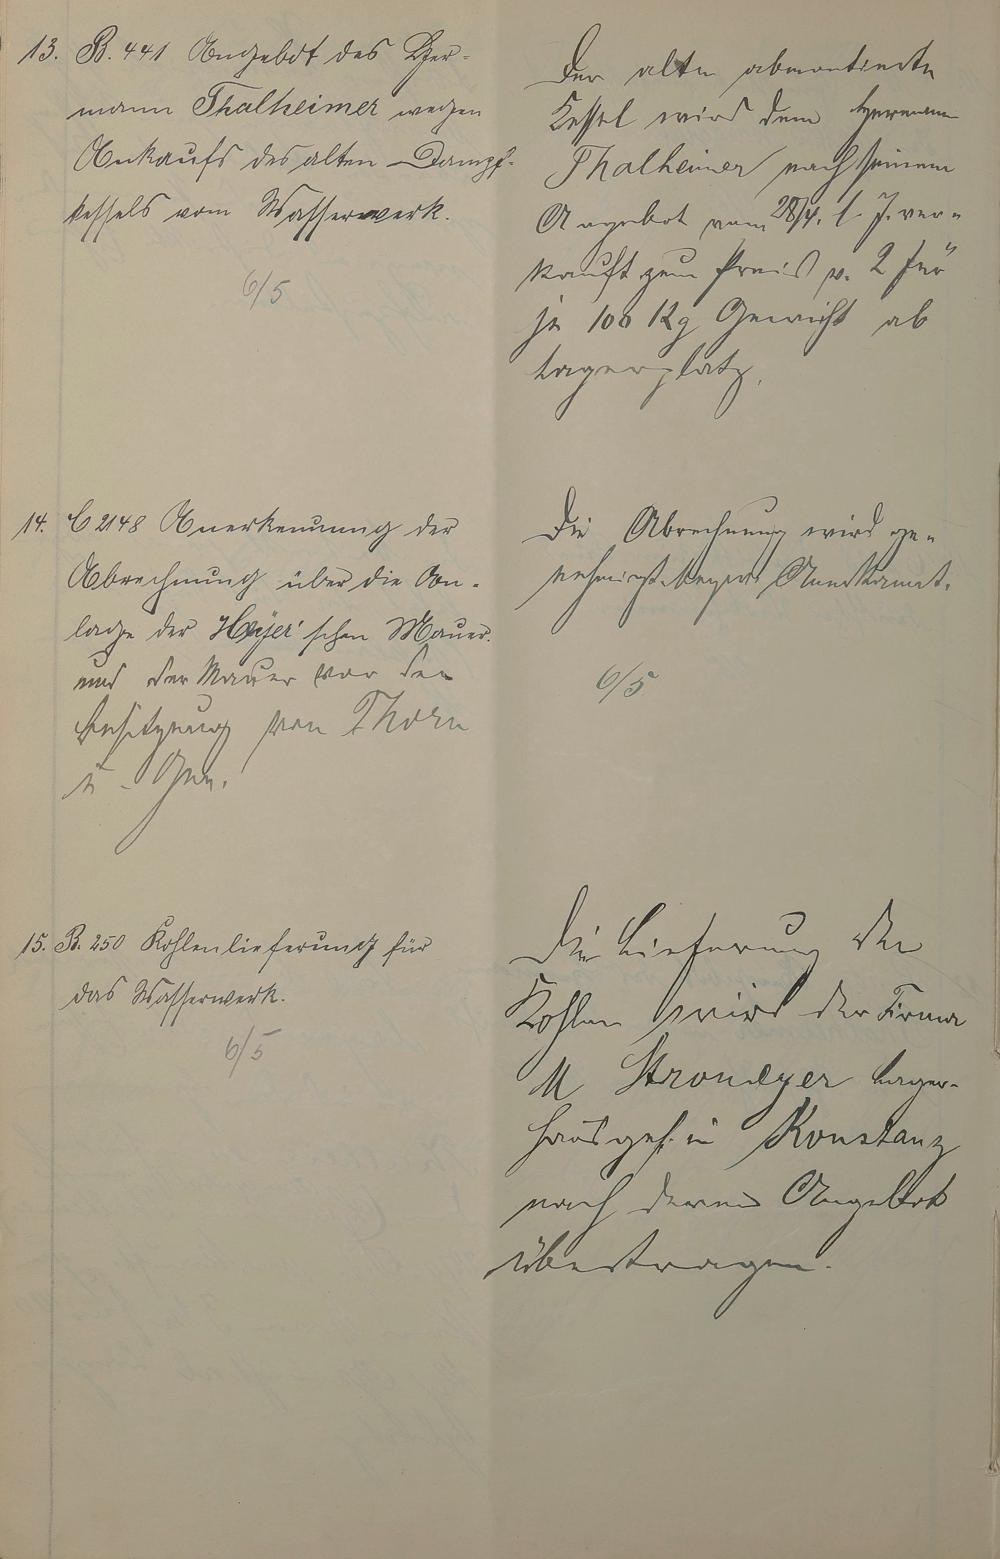 13. B. 441 Angebot des Her-
mann Thalheimer wegen
Ankaufs des alten Dampf-
kessels vom Wasserwerk.
6/5
Der alte abmontierte
Kessel wird dem Hermann
Thalheimer nach seinem
Angebot vom 28/4. l. J. ver-
kauft zum Preis v. 2 für
je 100 Kg Gewicht ab
Lagerplatz.
14. C 2148 Anerkennung der
Abrechnung über die An-
lage der Heyer'schen Mauer
und der Mauer vor der
Besitzung von Thorn
u. Gen.
Die Abrechnung wird ge-
nehmigt bezw. Anerkannt.
6/5
15. B. 250 Kohlenlieferung für
das Wasserwerk.
6/5
Die Lieferung der
Kohlen wird der Firma
M Stromeyer Lager-
hausges. in Konstanz
nach deren Angebot
übertragen.